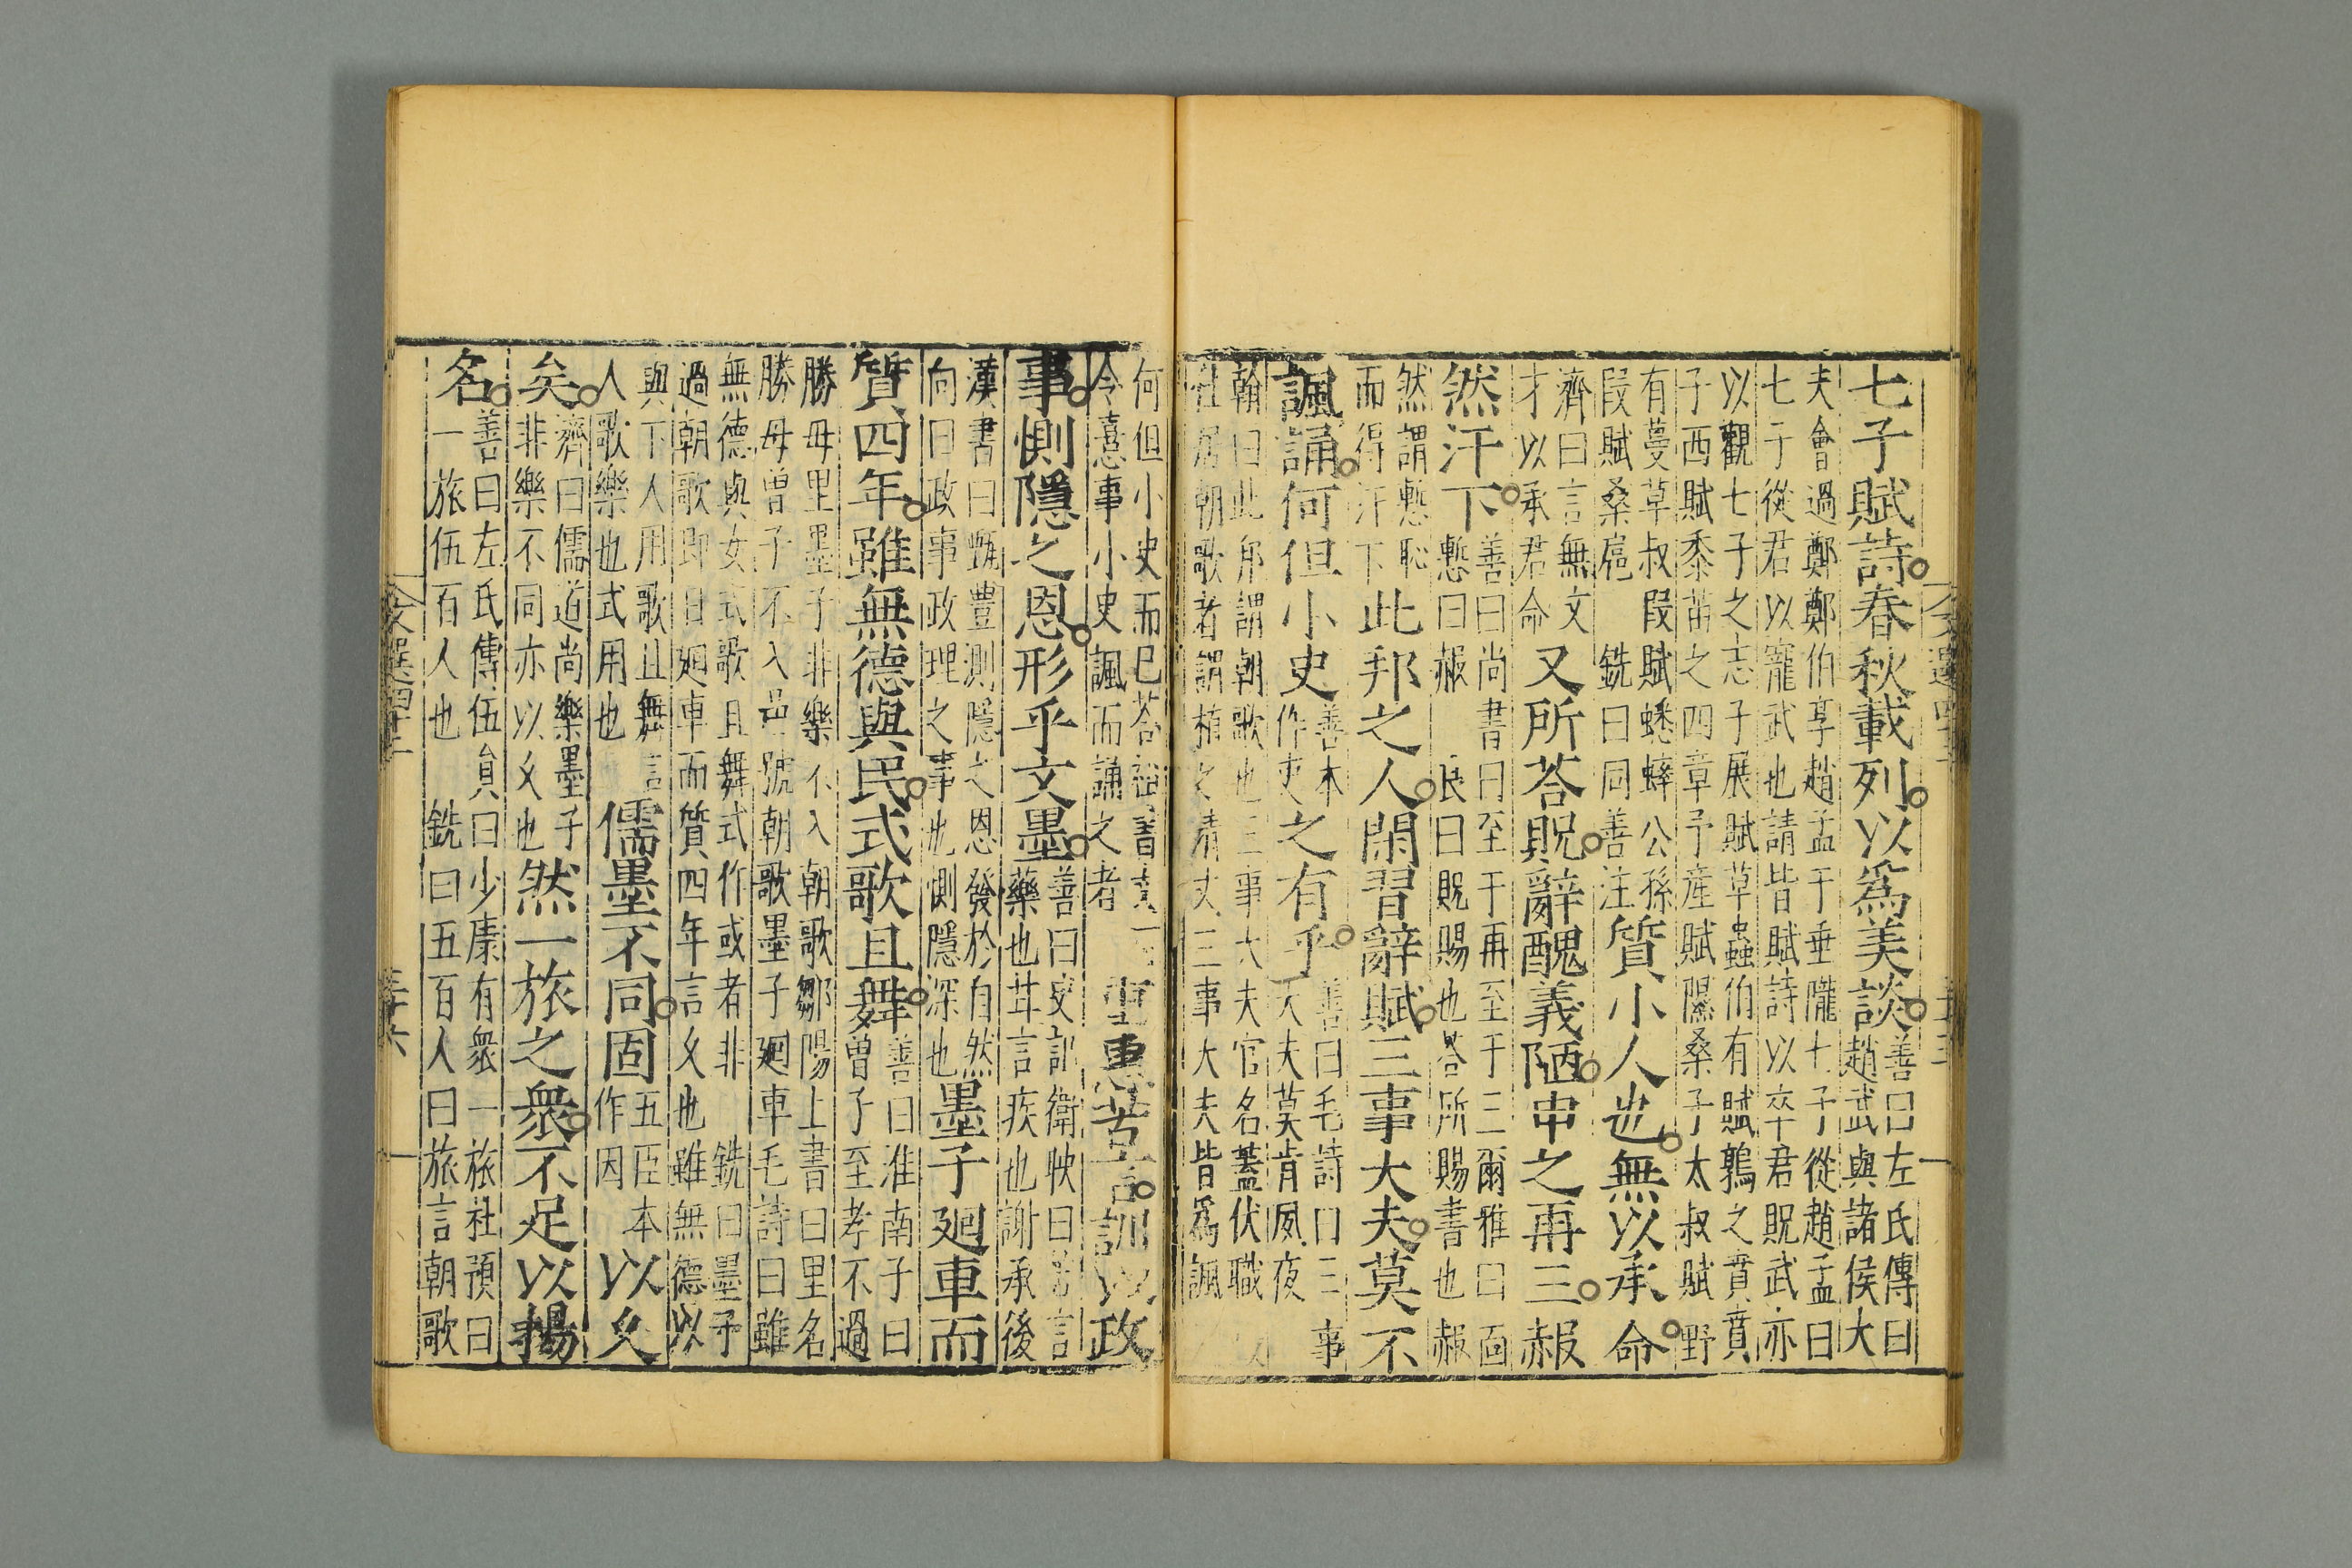 七子賦詩春秋載列以爲美談善曰左氏傳曰
趙武與諸侯大
夫會過鄭鄭伯享趙孟于垂隴七子從趙孟曰
七子從君以寵武也請皆賦詩以卒君貺武亦
以觀七子之志子展賦草蟲伯有賦鶉之賁賁
子西賦黍苗之四章子產賦隰桑子太叔賦野
有蔓草叔叚賦蟋蟀公孫
叚賦桑扈 銑曰同善注質小人也無以承命
齊曰言無文
才以承君命又所荅貺辭醜義陋申之再三赧
然汗下善曰尚書曰至于再至于三爾雅曰面
慙曰赧 良曰貺賜也荅所賜書也赧
然謂慙恥
而得汗下此邦之人閑習辭賦三事大夫莫不
諷誦何但小史善本
作吏之有乎善曰毛詩曰三事
大夫莫肯夙夜
翰曰此邦謂朝歌也三事大夫官名蓋伏職
往居朝歌者謂植之清丈三事大夫皆爲諷
何但小史而已荅
今憙事小史諷而誦之者 重惠苦言訓以政
事惻隱之恩形乎文墨善曰史記衛鞅曰苦言
藥也苦言疾也謝承後
漢書曰甄豊測隱之恩發於自然
向曰政事政理之事也惻隱深也墨子廻車而
質四年雖無德與民式歌且舞善曰淮南子曰
曾子至孝不過
勝母里墨子非樂不入朝歌鄒陽上書曰里名
勝母曾子不入邑號朝歌墨子廻車毛詩曰雖
無德與女式歌且舞式作或者非 銑曰墨子
過朝歌即日廻車而質四年言久也雖無德以
與下人用歌且舞言
人歌樂也式用也儒墨不同固五臣本
作因以久
矣濟曰儒道尚樂墨子
非樂不同亦以久也然一旅之衆不足以揚
名善曰左氏傳伍員曰少康有衆一旅杜預曰
一旅伍百人也 銑曰五百人曰旅言朝歌